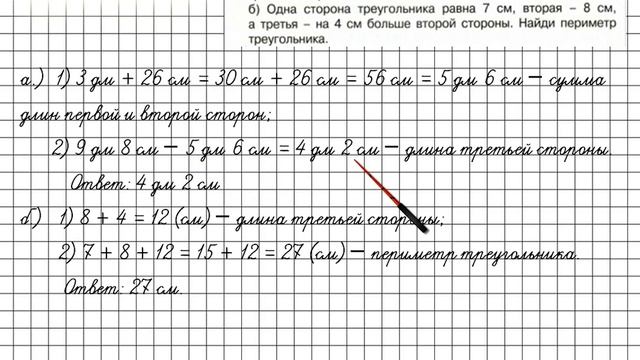 б) Одна сторона треугольника равна 7 см, вторая – 8 см,
а третья – на 4 см больше второй стороны. Найди периметр
треугольника.
а.) 1) 3 дм + 26 см = 30 см + 26 см = 56 см = 5 дм 6 см – сумма
длин первой и второй сторон;
2) 9 дм 8 см – 5 дм 6 см = 4 дм 2 см – длина третьей стороны.
Ответ: 4 дм 2 см
б) 1) 8 + 4 = 12 (см) – длина третьей стороны;
2) 7 + 8 + 12 = 15 + 12 = 27 (см) – периметр треугольника.
Ответ: 27 см.